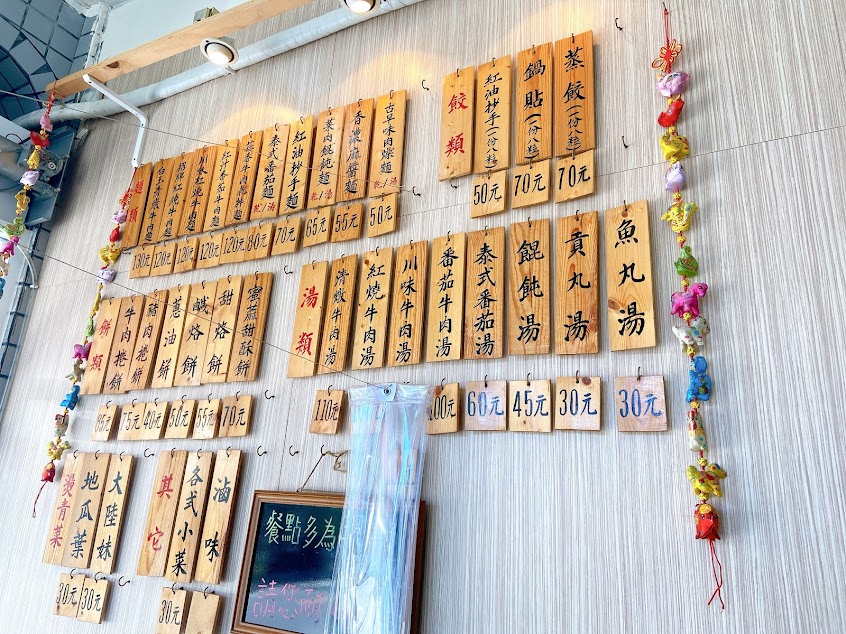 麵類
白玉清燉牛肉麵
招牌紅燒牛肉麵
川味紅燒牛肉麵
紅油抄手麵
泰式番茄麵 乾/湯
菜肉餛飩麵 乾/湯
香濃麻醬麵
古早味肉燥麵 乾/湯
130元
120元
120元
120元
120元
80元
70元
65元
55元
50元
餃類
紅油抄手(一份八粒)
鍋貼(一份八粒)
蒸餃(一份八粒)
50元
70元
70元
湯類
清燉牛肉湯
紅燒牛肉湯
川味牛肉湯
番茄牛肉湯
泰式番茄湯
餛飩湯
貢丸湯
魚丸湯
110元
100元
60元
45元
30元
30元
餅類
牛肉捲餅
豬肉捲餅
蔥油餅
鹹烙餅
甜烙餅
蜜麻甜酥餅
75元
40元
50元
55元
70元
燙青菜
地瓜葉
大陸妹
30元
30元
其它
各式小菜
滷味
30元
餐點多為
請您